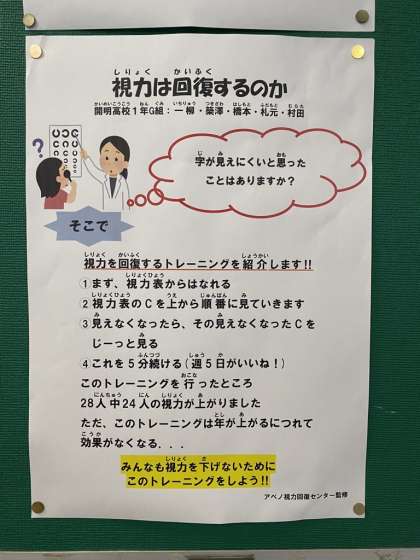 視力は回復するのか
開明高校1年G組：一柳・築澤・橋本・札元・村田
?
字が見えにくいと思った
ことはありますか？
そこで
視力を回復するトレーニングを紹介します!!
①まず、視力表からはなれる
②視力表のCを上から順番に見ていきます
③見えなくなったら、その見えなくなったCを
じーっと見る
④これを5分続ける(週5日がいいね！)
このトレーニングを行ったところ
28人中24人の視力が上がりました
ただ、このトレーニングは年が上がるにつれて
効果がなくなる．．．
みんなも視力を下げないために
このトレーニングをしよう!!
アベノ視力回復センター監修